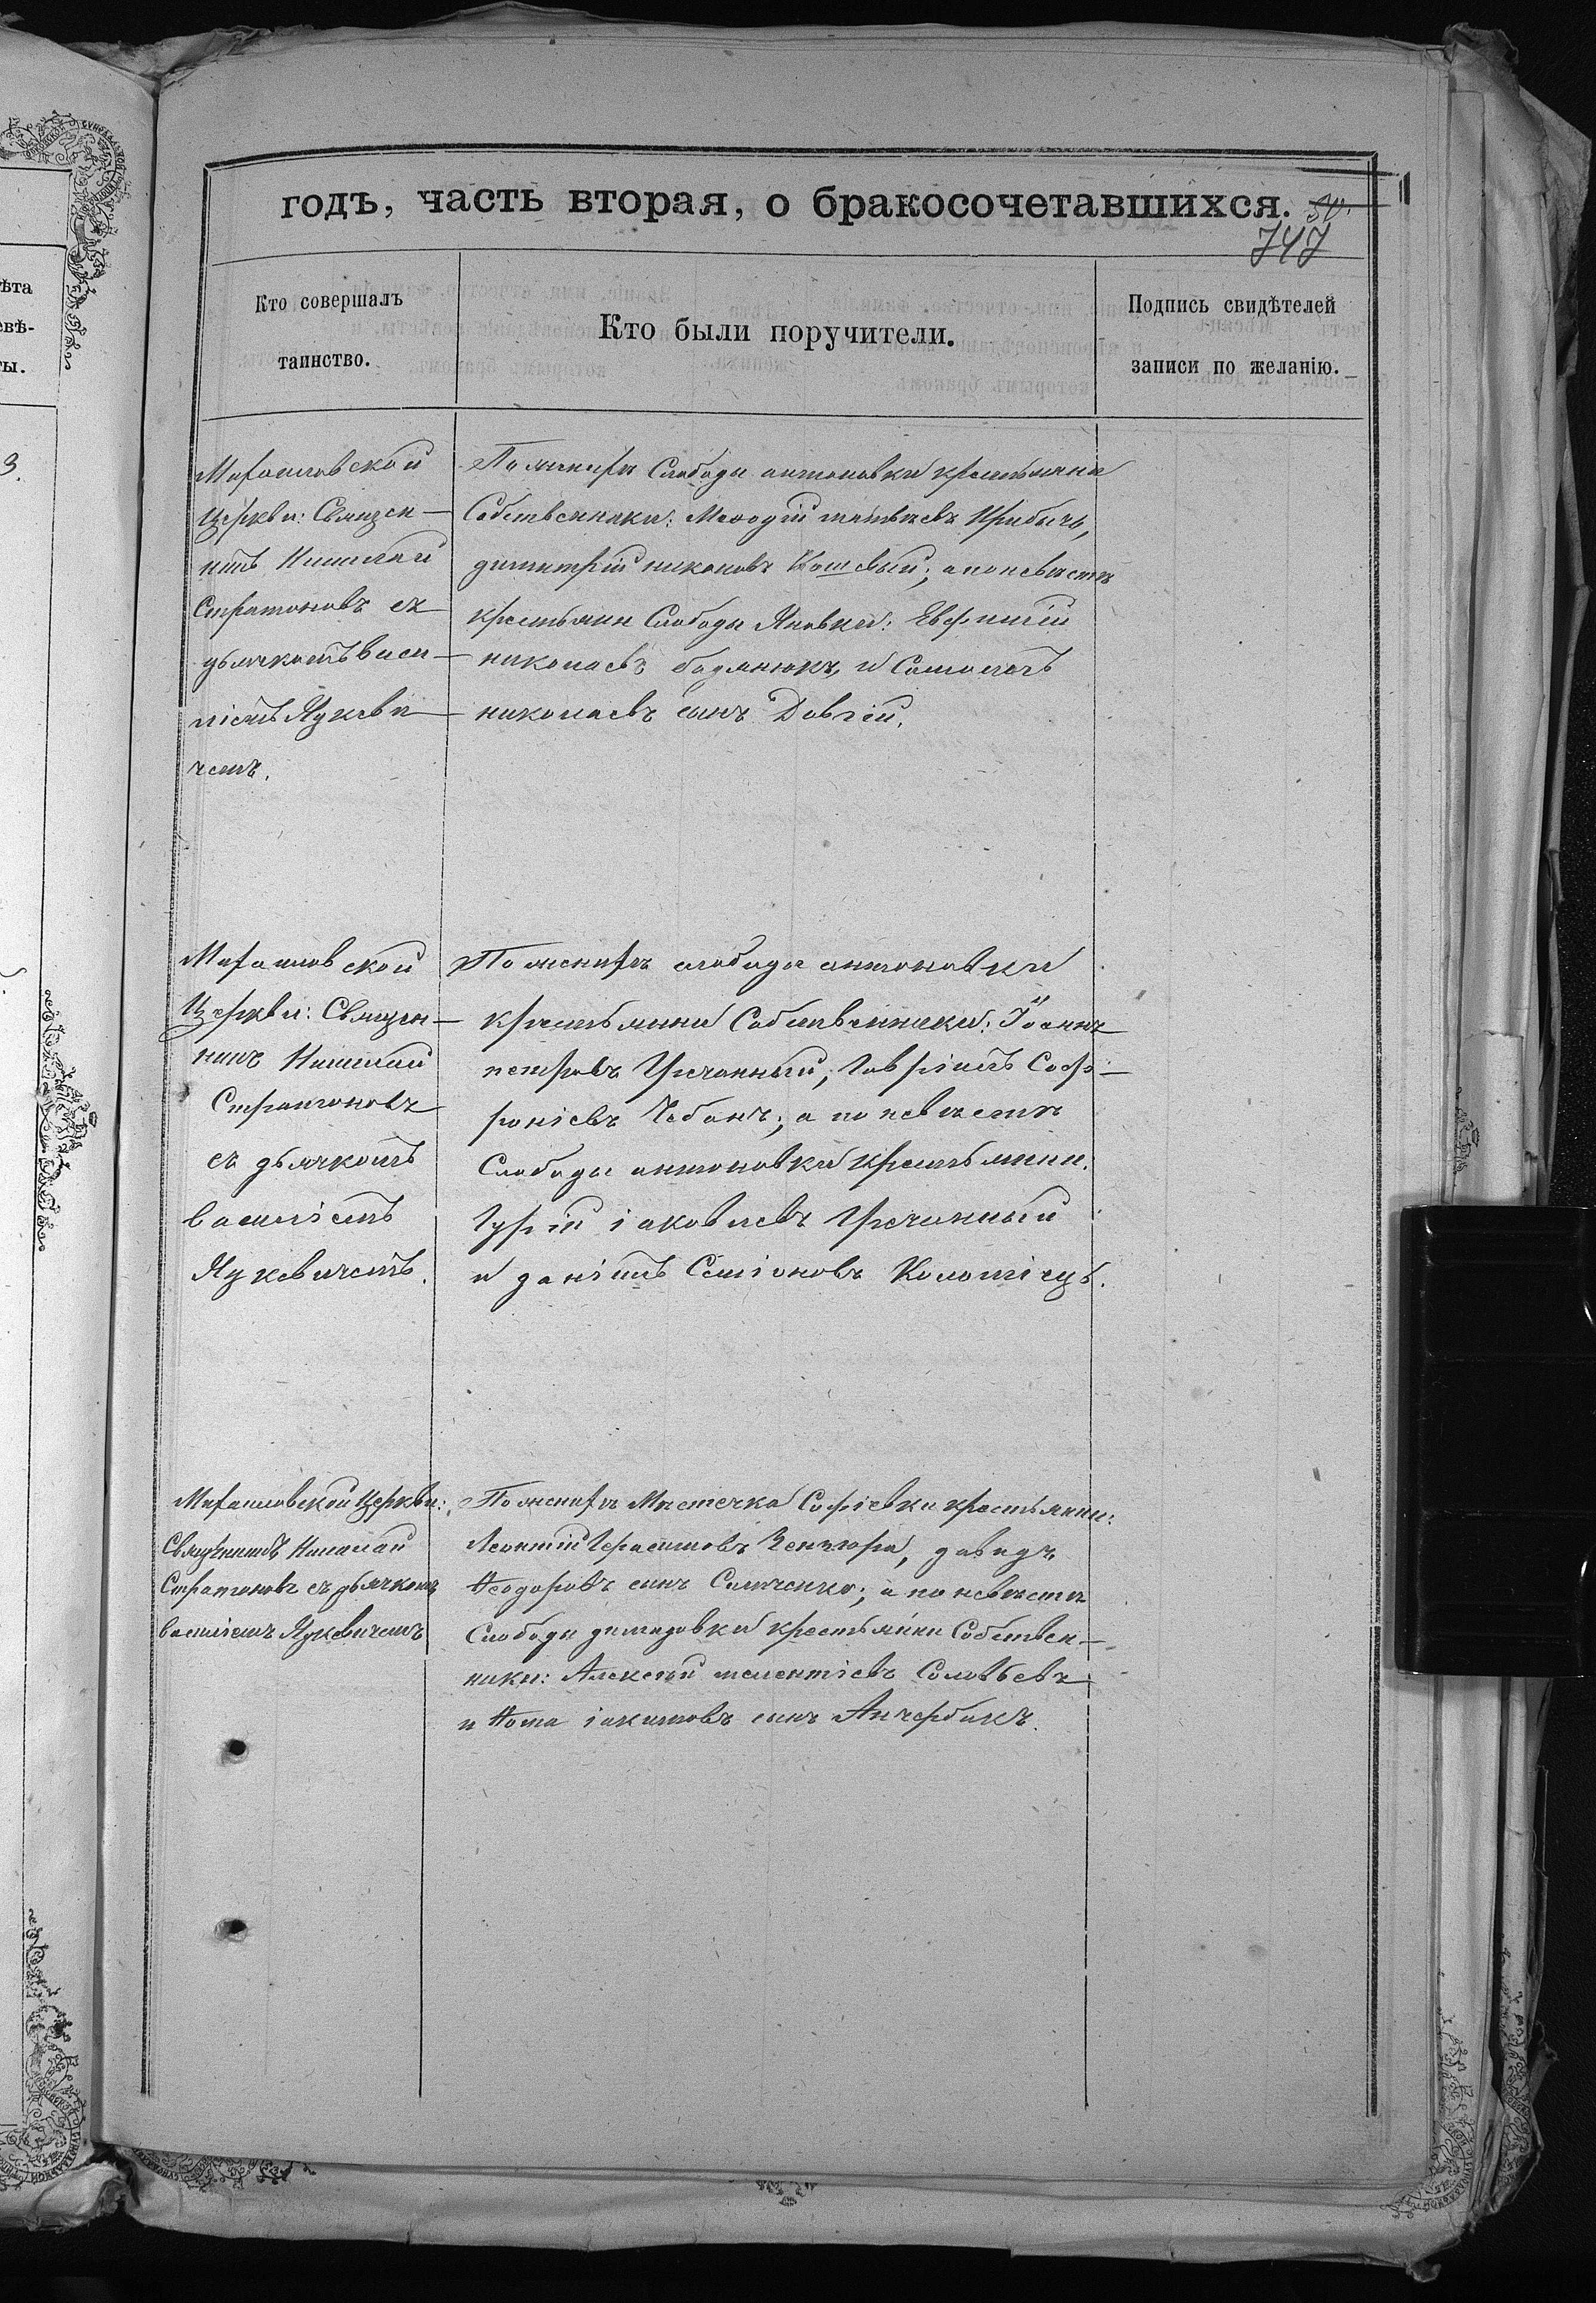 годъ, часть вторая, о бракосочетавшихся.
50.
747
ѣта
евѣ-
ты.
3.
Кто совершалъ
таинство.
Кто были поручители.
Подпись свидѣтелей
записи по желанію.
Михаиловской
Церкви: Священ-
никъ Николай
Стратоновъ съ
дьячкомъ Васи-
ліемъ Яцкеви-
чемъ.
По женихѣ Слободы антоновки крестьяне
Собственники: Меѳодій матвѣевъ
димитрій никоновъ Кошевый; а по невѣстѣ
крестьяни Слободы Яновки: Евфимій
николаевъ и Самоилъ
николаевъ сынъ Довгій.
Михаиловской
Церкви: Священ-
никъ Николай
Стратоновъ
съ дьячкомъ
василіемъ
Яцкевичемъ.
По женихѣ слободы антоновки
крестьяни Собственники: Іоаннъ
петровъ Гречанный; Гавріилъ Соф-
роніевъ Чебанъ; а по невѣстѣ
Слободы антоновки крестьяни:
Гурій іаковлевъ Гречанный
и даніилъ Симіоновъ Коломіецъ.
Михаиловской Церкви:
Священникъ Николай
Стратоновъ съ дьячкомъ
василіемъ Яцкевичемъ
По женихѣ Мѣстечка Софіевки крестьяни:
Леонтій Герасимовъ давидъ
Ѳеодоровъ сынъ а по невѣстѣ
Слободы демидовки крестьяни Собствен-
ники: Алексѣй мелентіевъ Соловьевъ
и Ѳома іакимовъ сынъ